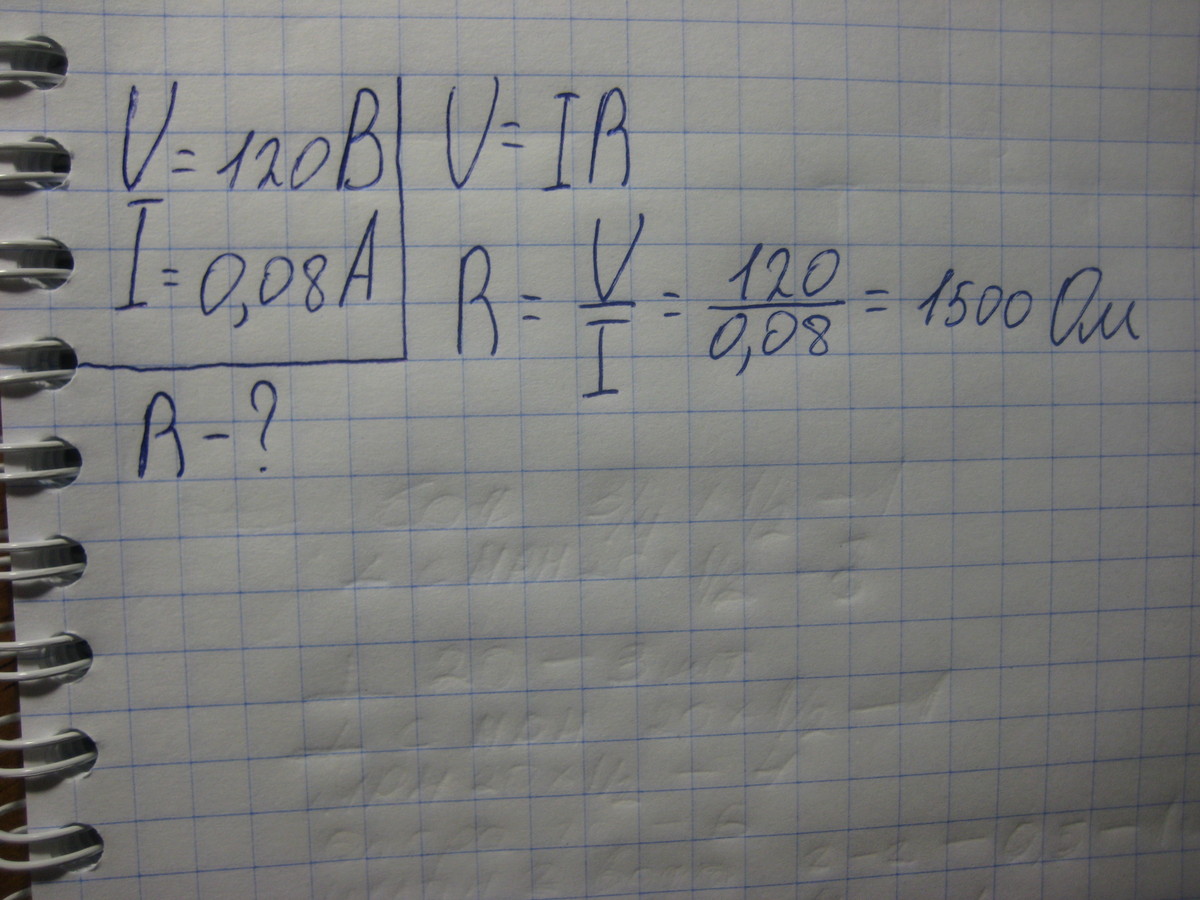 V = 120 В
I = 0,08 А
R - ?
V = I R
R = V/I = 120/0,08 = 1500 Ом